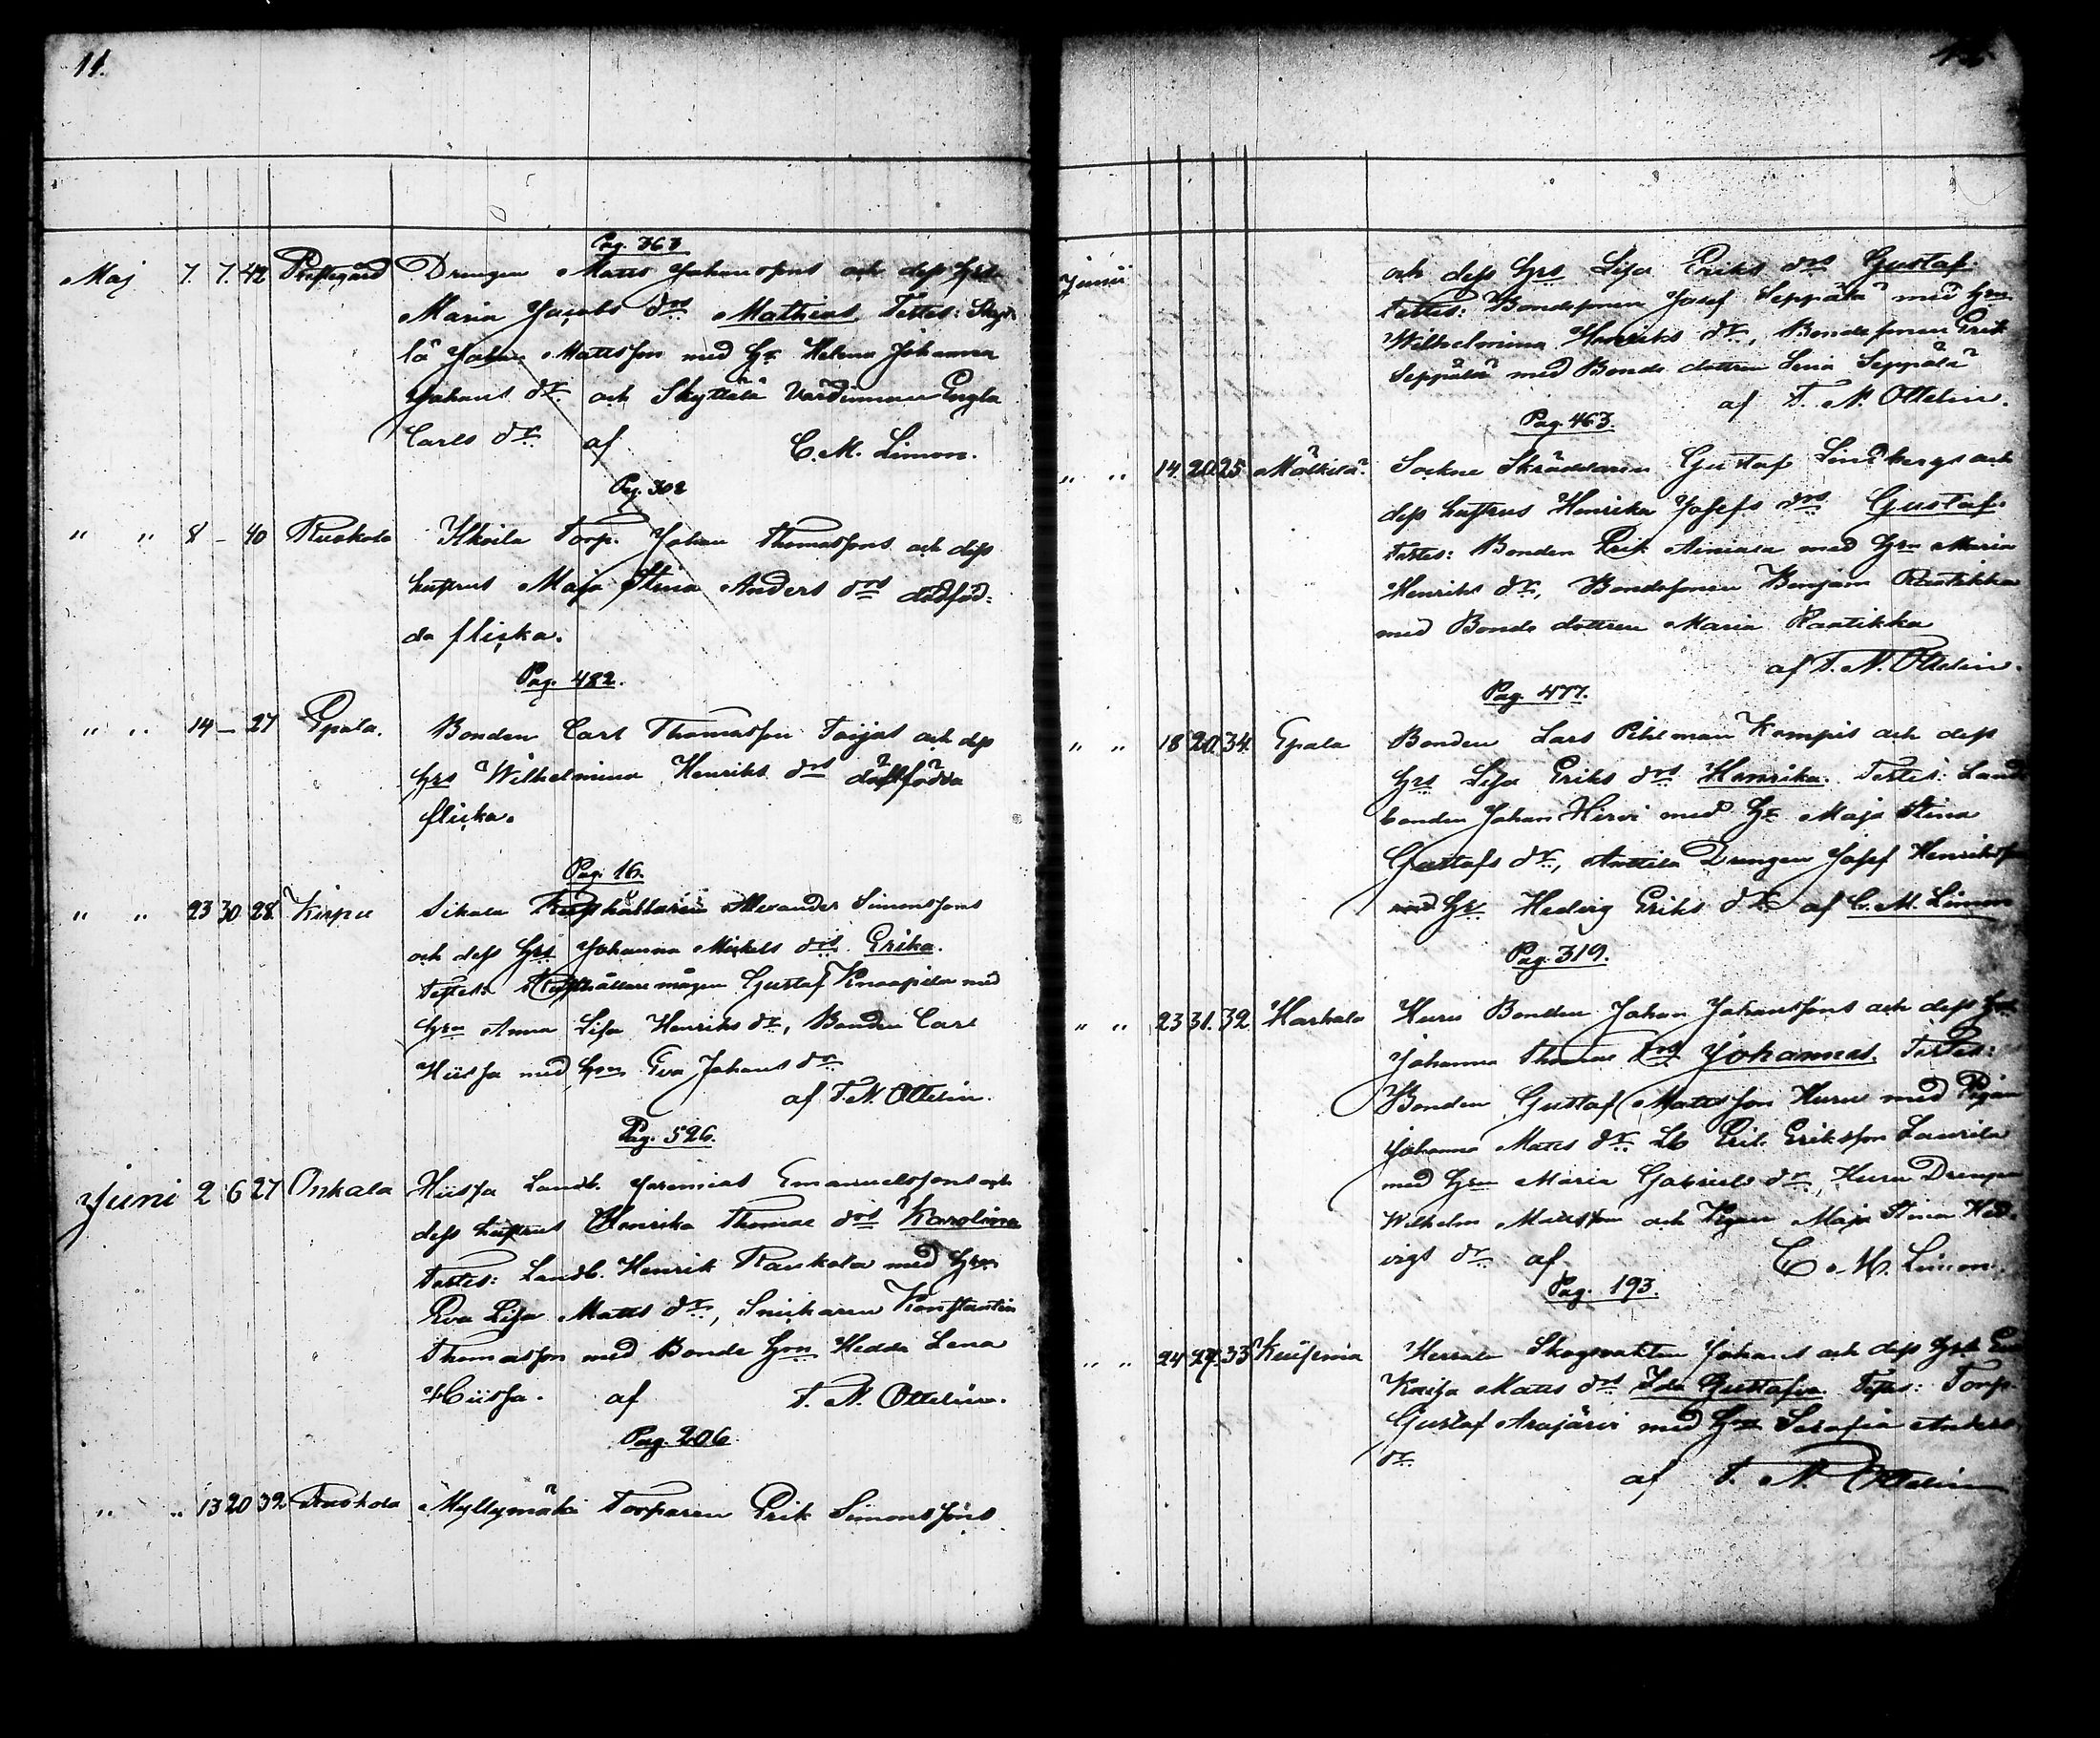 11.
Pag. 363
Maj 7. 7. 42 Prestgård Drengen Matts Johanssons och dess Hrs
Maria Jacobs drs Mathias Testes: Skyt-
lä Johan Mattsson med Hr Helena Johanna
Johans dr och Skyttälä Värdinnan Engla
Carls dr af C. M. Limon.
Pag. 302
" " 8 – 40 Ruskola Torp. Johan Thomassons och dess
hustrus Maja Stina Anders drs dödföd-
da flicka.
Pag. 482.
" " 14 – 27 Epala. Bonden Carl Thomasson Taijas och dess
Hrs Wilhelmina Henriks drs dödfödda
flicka.
Pag. 16.
" " 23 30 28 Kirpu Sikala Rusthållaren Alexander Simonssons
och dess Hrs Johanna Mickels drs Erika.
Testes: Rusthållare mågen Gustaf Knaapila med
Hrn Anna Lisa Henriks dr, Bonden Carl
Hiissa med Hrn Eva Johans dr
af T. N. Ottelin.
Pag. 526.
Juni 2 6 27 Onkala Hiissa Landb. Jeremias Emanuelssons och
dess hustrus Henrika Thomae drs Karolina
Testes: Landb. Henrik Rauskola med Hrn
Eva Lisa Matts dr, Snickaren Konstantin
Thomasson med Bonde Hrn Hedda Lena
Hiissa. af T. N. Ottelin.
Pag. 206
" " 13 20 32 Ruskola Myllymäki Torparen Erik Simonssons
Junii och dess Hrs Lisa Eriks drs Gustaf.
Testes: Bondesonen Josef Seppälä med Hrn
Wilhelmina Henriks dr, Bondesonen Erik
Seppälä med Bonde dottren Lena Seppälä
af T. N. Ottelin.
Pag. 463.
" " 14 20 25 Mälkilä. Sockne Skräddaren Gustaf Lindbergs och
dess hustrus Henrika Josefs drs Gustaf.
Testes: Bonden Erik Ainiala med Hrn Maria
Henriks dr, Bondesonen Benjam Raatikka
med Bonde dottren Maria Raatikka
af T. N. Ottelin.
Pag. 477.
" " 18 20 34 Epala Bonden Lars Pihlman Kompis och dess
Hrs Lisa Eriks drs Henrika. Testes: Land-
bonden Johan Hirvi med Hr Maja Stina
Gustafs dr, Anttila Drengen Josef Henriksson
med Hr Hedvig Eriks dr af C. M. Limon
Pag. 319.
" " 23 31. 32 Harhala Huru Bonden Johan Johanssons och dess Hrs
Johanna Thomae drs Johannes. Testes:
Bonden Gustaf Mattsson Huru med Pigan
Johanna Matts dr. Lb Erik Eriksson Laurila
med Hrn Maria Gabriels dr, Huru Drengen
Wilhelm Mattsson och Pigan Maja Stina Hed-
vigs dr af C. M. Limon.
Pag. 193.
" " 24 27. 33 Skogvakten Johans och dess Hrs Eva
Kaisa Matts drs Ida Gustafva Testes: Torp.
Gustaf Arajärvi med Hrn Serafia Anders
dr.
af T. N. Ottelin